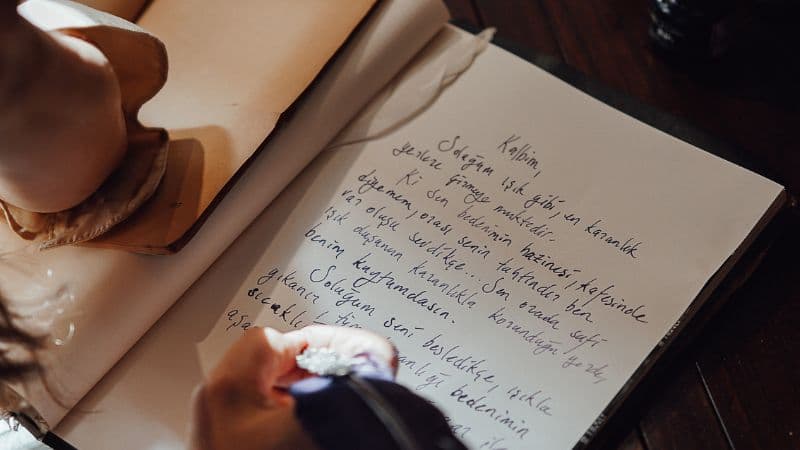 Kalbim,
Soluğum ışık gibi, en karanlık
yerlere girmeye muktedir.
Ki sen bedenimin hazinesi, kafesinde
diyemem, orası senin tahtındır ben
var oluşu sevdikçe... Sen orada safi
ışık düşünen karanlıkla korunduğu yerde,
benim kaytumdasın.
Soluğum seni besledikçe, ışıkla
yıkanır
bedenimin